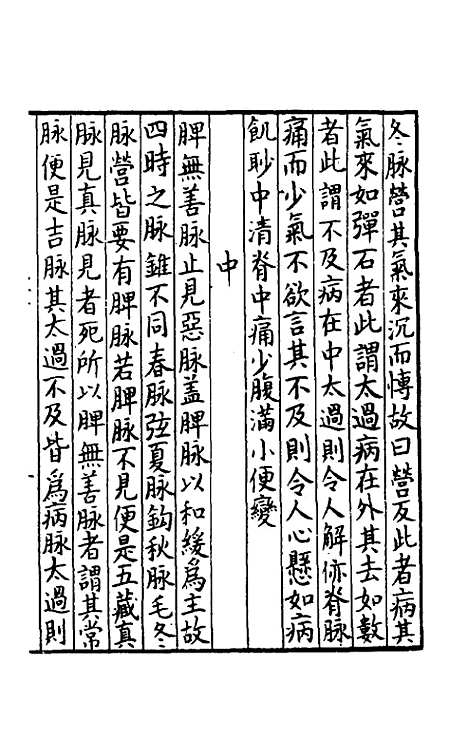 冬脉營其氣來沉而慱故曰營反此者病其
氣來如彈石者此謂太過病在外其去如數
者此謂不及病在中太過則令人解㑊脊脉
痛而少氣不欲言其不及則令人心懸如病
飢䏚中清脊中痛少腹滿小便變
中
脾無善脉止見惡脉盖脾脉以和緩爲主故
四時之脉雖不同春脉弦夏脉鈎秋脉毛冬
脉營皆要有脾脉若脾脉不見便是五藏真
脉見真脉見者死所以脾無善脉者謂其常
脉便是吉脉其太過不及皆爲病脉太過則